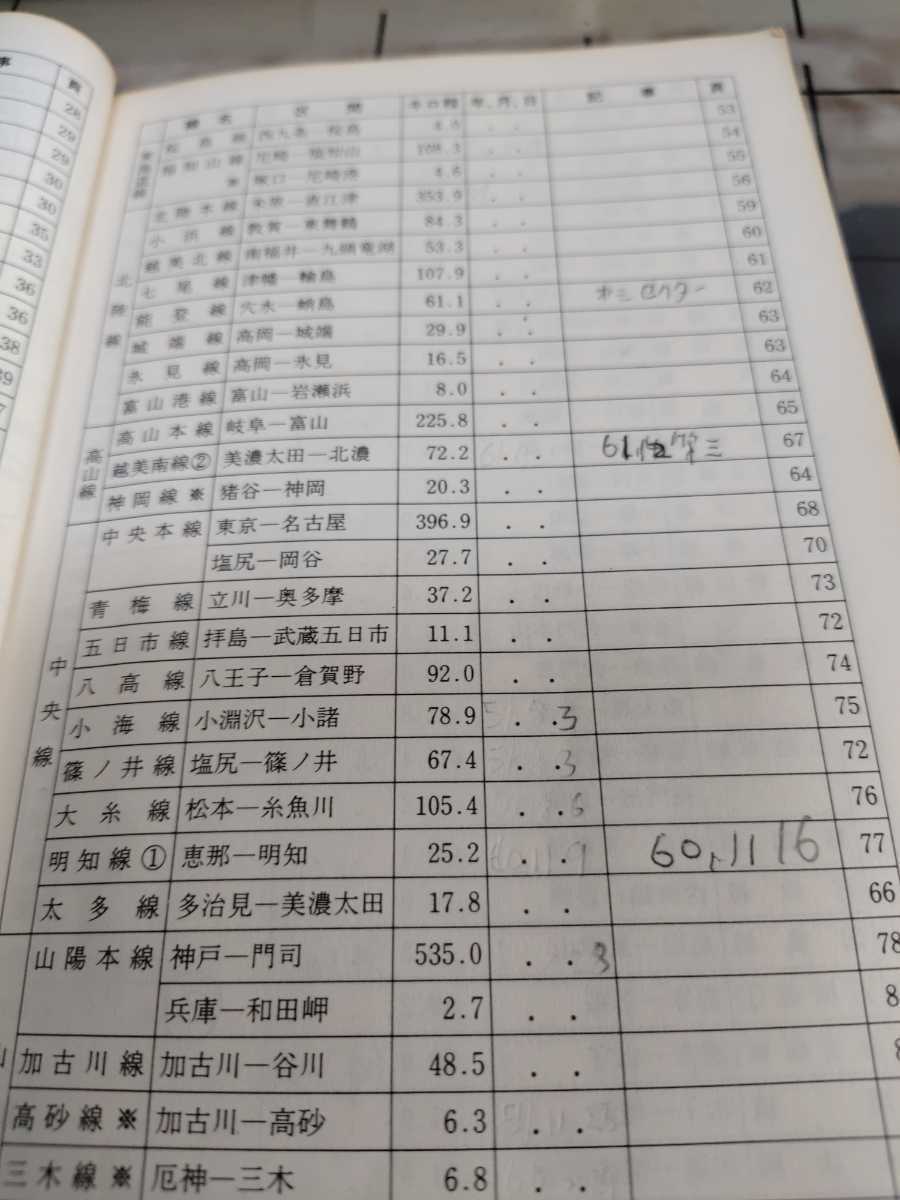 線名 区間 キロ程 年.月.日 記事 頁
桜島線 西九条—桜島 53
福知山線 尼崎—福知山 54
※ 塚口—尼崎港 4.6 . . 55
北陸本線 米原—直江津 353.9 . . 56
小浜線 敦賀—東舞鶴 84.3 . . 59
越美北線 南福井—九頭竜湖 53.3 . . 60
七尾線 津幡—輪島 107.9 . . 61
能登線 穴水—蛸島 61.1 . . 62
城端線 高岡—城端 29.9 . . 63
氷見線 高岡—氷見 16.5 . . 63
富山港線 富山—岩瀬浜 8.0 . . 64
北陸線
高山本線 岐阜—富山 225.8 . . 65
越美南線② 美濃太田—北濃 72.2 . . 67
神岡線※ 猪谷—神岡 20.3 . . 64
高山線
中央本線 東京—名古屋 396.9 . . 68
塩尻—岡谷 27.7 . . 70
青梅線 立川—奥多摩 37.2 . . 73
五日市線 拝島—武蔵五日市 11.1 . . 72
八高線 八王子—倉賀野 92.0 . . 74
小海線 小淵沢—小諸 78.9 . . 3 75
篠ノ井線 塩尻—篠ノ井 67.4 . . 3 72
大糸線 松本—糸魚川 105.4 . . 76
明知線① 恵那—明知 25.2 . . 60, 11 16 77
太多線 多治見—美濃太田 17.8 . . 66
中央線
山陽本線 神戸—門司 535.0 . . 3 78
兵庫—和田岬 2.7 . . 8
加古川線 加古川—谷川 48.5 . .
高砂線※ 加古川—高砂 6.3 . .
三木線※ 厄神—三木 6.8 . .
頁
28
29
29
30
30
35
33
36
36
38
39